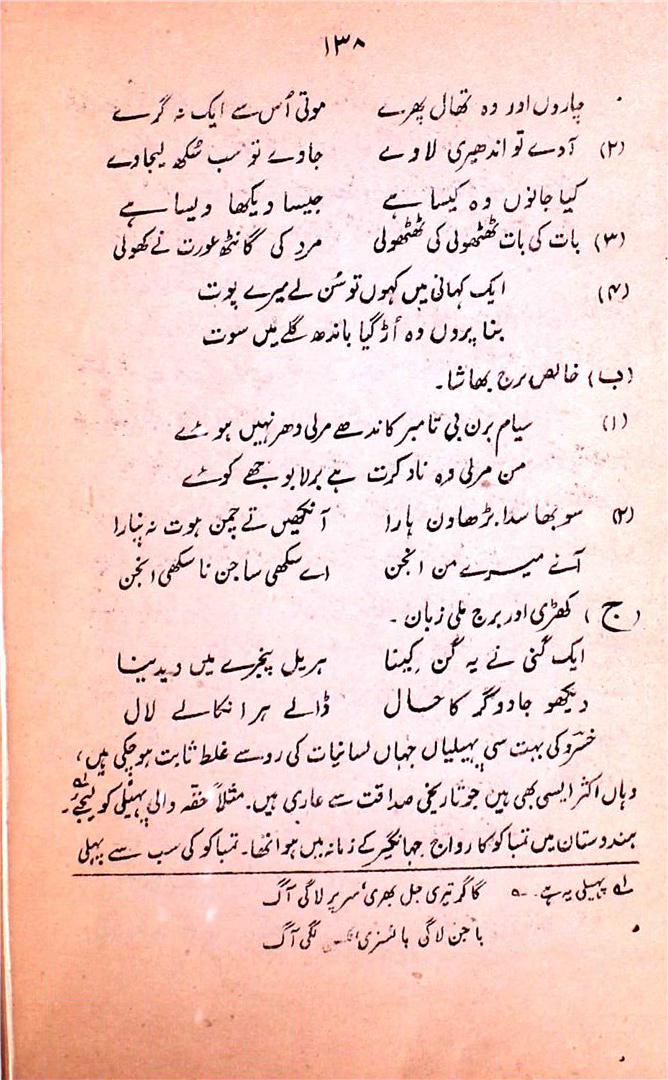 ۱۳۸
چاروں اور وہ تھال پھرے موتی اُس سے ایک نہ گرے
(۲) آوے تو اندھیری لاوے جاوے تو سب سُکھ لیجاوے
کیا جانوں وہ کیسا ہے جیسا دیکھا ویسا ہے
(۳) بات کی بات ٹھٹھولی کی ٹھٹھولی مرد کی گانٹھ عورت نے کھولی
(۴) ایک کہانی میں کہوں تو سُن لے میرے پوت
بنا پروں وہ اُڑ گیا باندھ گلے میں سوت
(ب) خالص برج بھاشا۔
(۱) سیام برن پی تامبر کاندھے مرلی دھر نہیں ہوئے
من مرلی وہ ناد کرت ہے برلا بوجھے کوئے
(۲) سوبھا سدا بڑھاون ہارا آنکھیں تے چھن ہوت نہ نیارا
آنے میرے من انجن اے سکھی ساجن نا سکھی انجن
(ج) کھڑی اور برج ملی زبان۔
ایک گنی نے یہ گن کینا ہریل پنجرے میں دیدینا
دیکھو جادوگر کا حال ڈالے ہرا نکالے لال
خسرو کی بہت سی پہیلیاں جہاں لسانیات کی رو سے غلط ثابت ہو چکی ہیں،
وہاں اکثر ایسی بھی ہیں جو تاریخی صداقت سے عاری ہیں۔ مثلاً حقہ والی پہیلی کو لیجئے۔
ہندوستان میں تمباکو کا رواج جہانگیر کے زمانہ میں ہوا تھا۔ تمباکو کی سب سے پہلی
پہیلی یہ ہے۔ گاگر تیری جل بھری، سر پر لاگی آگ
باجن لاگی بانسری، لگی آگ